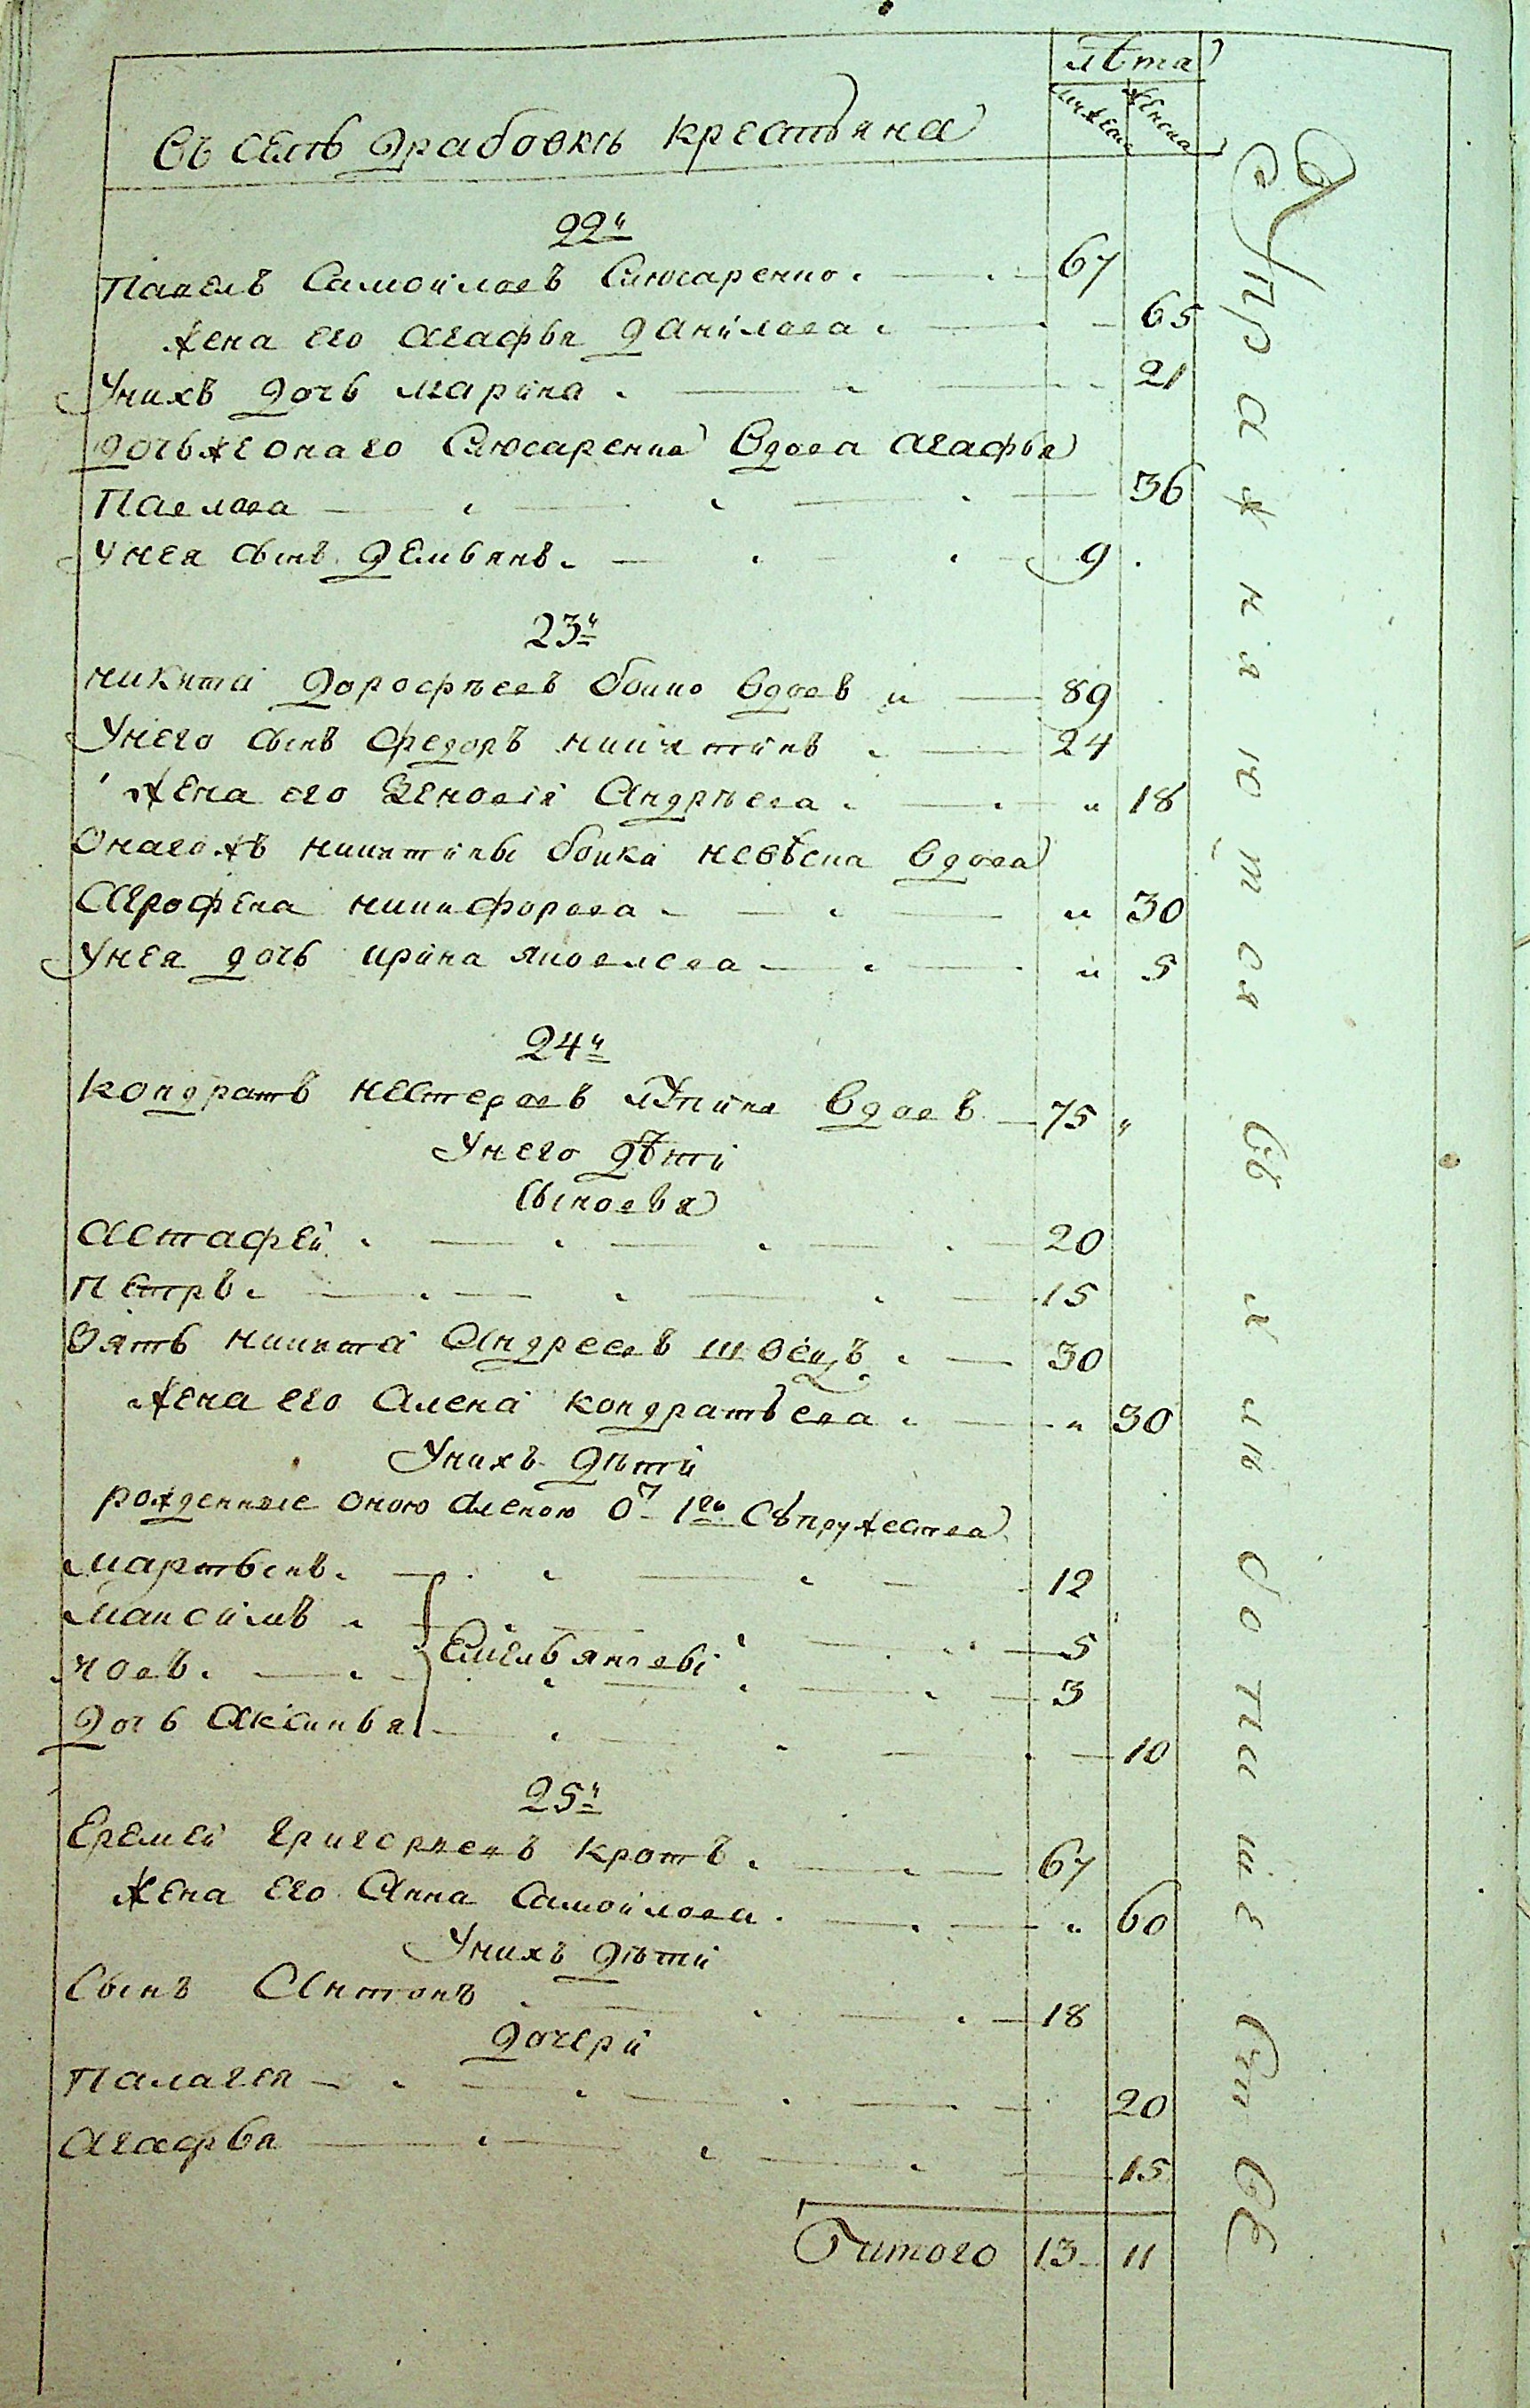 лѣта
мужеска женска
Въ селѣ Драбовкѣ крестьяна
22й
Павелъ Самойловъ Слюсаренко 67
жена его Агафья Данилова 65
У нихъ дочь Марина 21
дочь же онаго Слюсаренка вдова Агафья
Павлова 36
У нея сынъ Демьянъ 9
23й
Никита Дорофѣевъ Бойко вдовъ 89
У него сынъ Федоръ Никитинъ 24
Жена его Зеновія Андрѣева " 18
Онагожъ Никиты Бойка невѣска вдова
Агрофена Никифорова " 30
У нея дочь Ирина Яковлева " 5
24й
Кондратъ Нестеровъ вдовъ 75 "
У него дѣти
Сыновья
Астафей 20
Петръ 15
Зять Никита Андреевъ Швецъ 30
жена его Алена Кондратьева " 30
У нихъ дѣти
рожденные оною Аленою от 1го Съпружества
Мартынъ 12
Максимъ 5
Емельяновы
Іовъ 3
Дочь Аксинья 10
25й
Еремей Григорьевъ Кротъ 67
Жена его Анна Самойлова " 60
У нихъ дѣти
Сынъ Антонъ 18
Дочери
Палагея 20
Агафья 15
Итого 13 11
Упражняются въ хлѣбопашествѣ